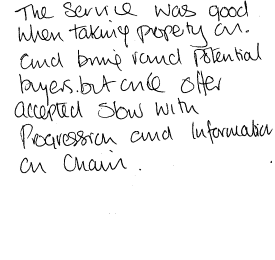 The Service was good
when taking property on.
and bring round potential
buyers. but once offer
accepted slow with
Progression and Information
on Chain.